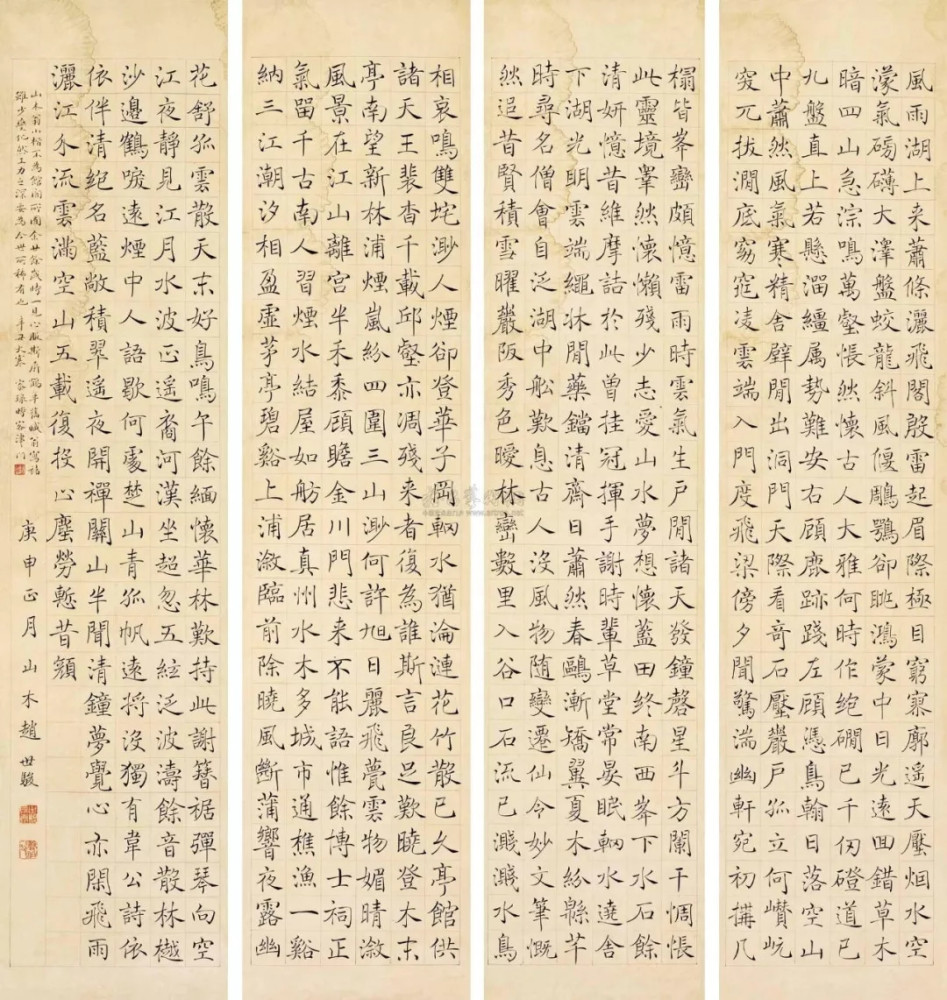 風雨湖上来蕭條灑飛閣殷雷起眉際極目窮寥廓遥天壓烟水空
濛氣磅礴大澤盤蛟龍斜風偃鵰鶚卻眺鴻蒙中日光遠回錯草木
暗四山急淙鳴萬壑悵然懷古人大雅何時作絶磵已千仞磴道已
九盤直上若懸溜繮属勢難安右顧鹿跡踐左顧憑鳥翰日落空山
中蕭然風氣寒精舍壁閒出洞門天際看奇石壓巖戶孤立何巑岏
突兀拔澗底窈窕凌雲端入門度飛梁傍夕聞驚湍幽軒宛初搆几
榻皆峯巒頗憶雷雨時雲氣生戶閒諸天發鐘磬星斗方闌干惆悵
此靈境鞏然懷懶殘少志愛山水夢想懷藍田終南西峯下水石餘
清妍憶昔維摩詰於此曽挂冠揮手謝時輩草堂常晏眠輞水遶舍
下湖光明雲端繩牀閒藥鐺清齋日蕭然春鷗漸矯翼夏木紛緜芊
時尋名僧會自泛湖中舩歎息古人沒風物随變遷仙令妙文筆慨
然追昔賢積雪曜巖阪秀色曖林巒數里入谷口石流已濺濺水鳥
相哀鳴雙垞渺人煙卻登華子岡輞水猶淪漣花竹散已久亭館供
諸天王裴杳千載邱壑亦凋殘来者復為誰斯言良足歎曉登木末
亭南望新林浦煙嵐紛四圍三山渺何許旭日麗飛甍雲物媚晴漵
風景在江山離宮半禾黍顧瞻金川門悲来不能語惟餘博士祠正
氣留千古南人習煙水結屋如舫居真州水木多城市通樵漁一谿
納三江潮汐相盈虛茅亭碧谿上浦漵臨前除曉風斷蒲響夜露幽
花舒孤雲散天末好鳥鳴午餘緬懷華林歎持此謝簪裾彈琴向空
江夜靜見江月水波正遥裔河漢坐超忽五絃泛波濤餘音散林樾
沙邊鶴唳遠煙中人語歇何處楚山青孤帆遠将沒獨有韋公詩依
依伴清絕名藍敞積翠遥夜開禪關山半聞清鐘夢覺心亦閑飛雨
灑江水流雲滿空山五載復投心塵勞慙昔顏
庚申正月山木趙世駿
山木翁小楷不為館閣所囿余廿餘歲時一見心
雖少變化然工力之深要為今世所稀有也辛丑大寒